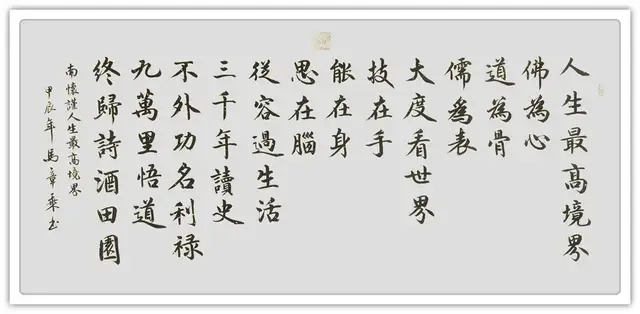 人生最高境界
佛為心
道為骨
儒為表
大度看世界
技在手
能在身
思在腦
從容過生活
三千年讀史
不外功名利禄
九萬里悟道
終歸詩酒田園
南懷謹人生最高境界
甲辰年馬章乘书